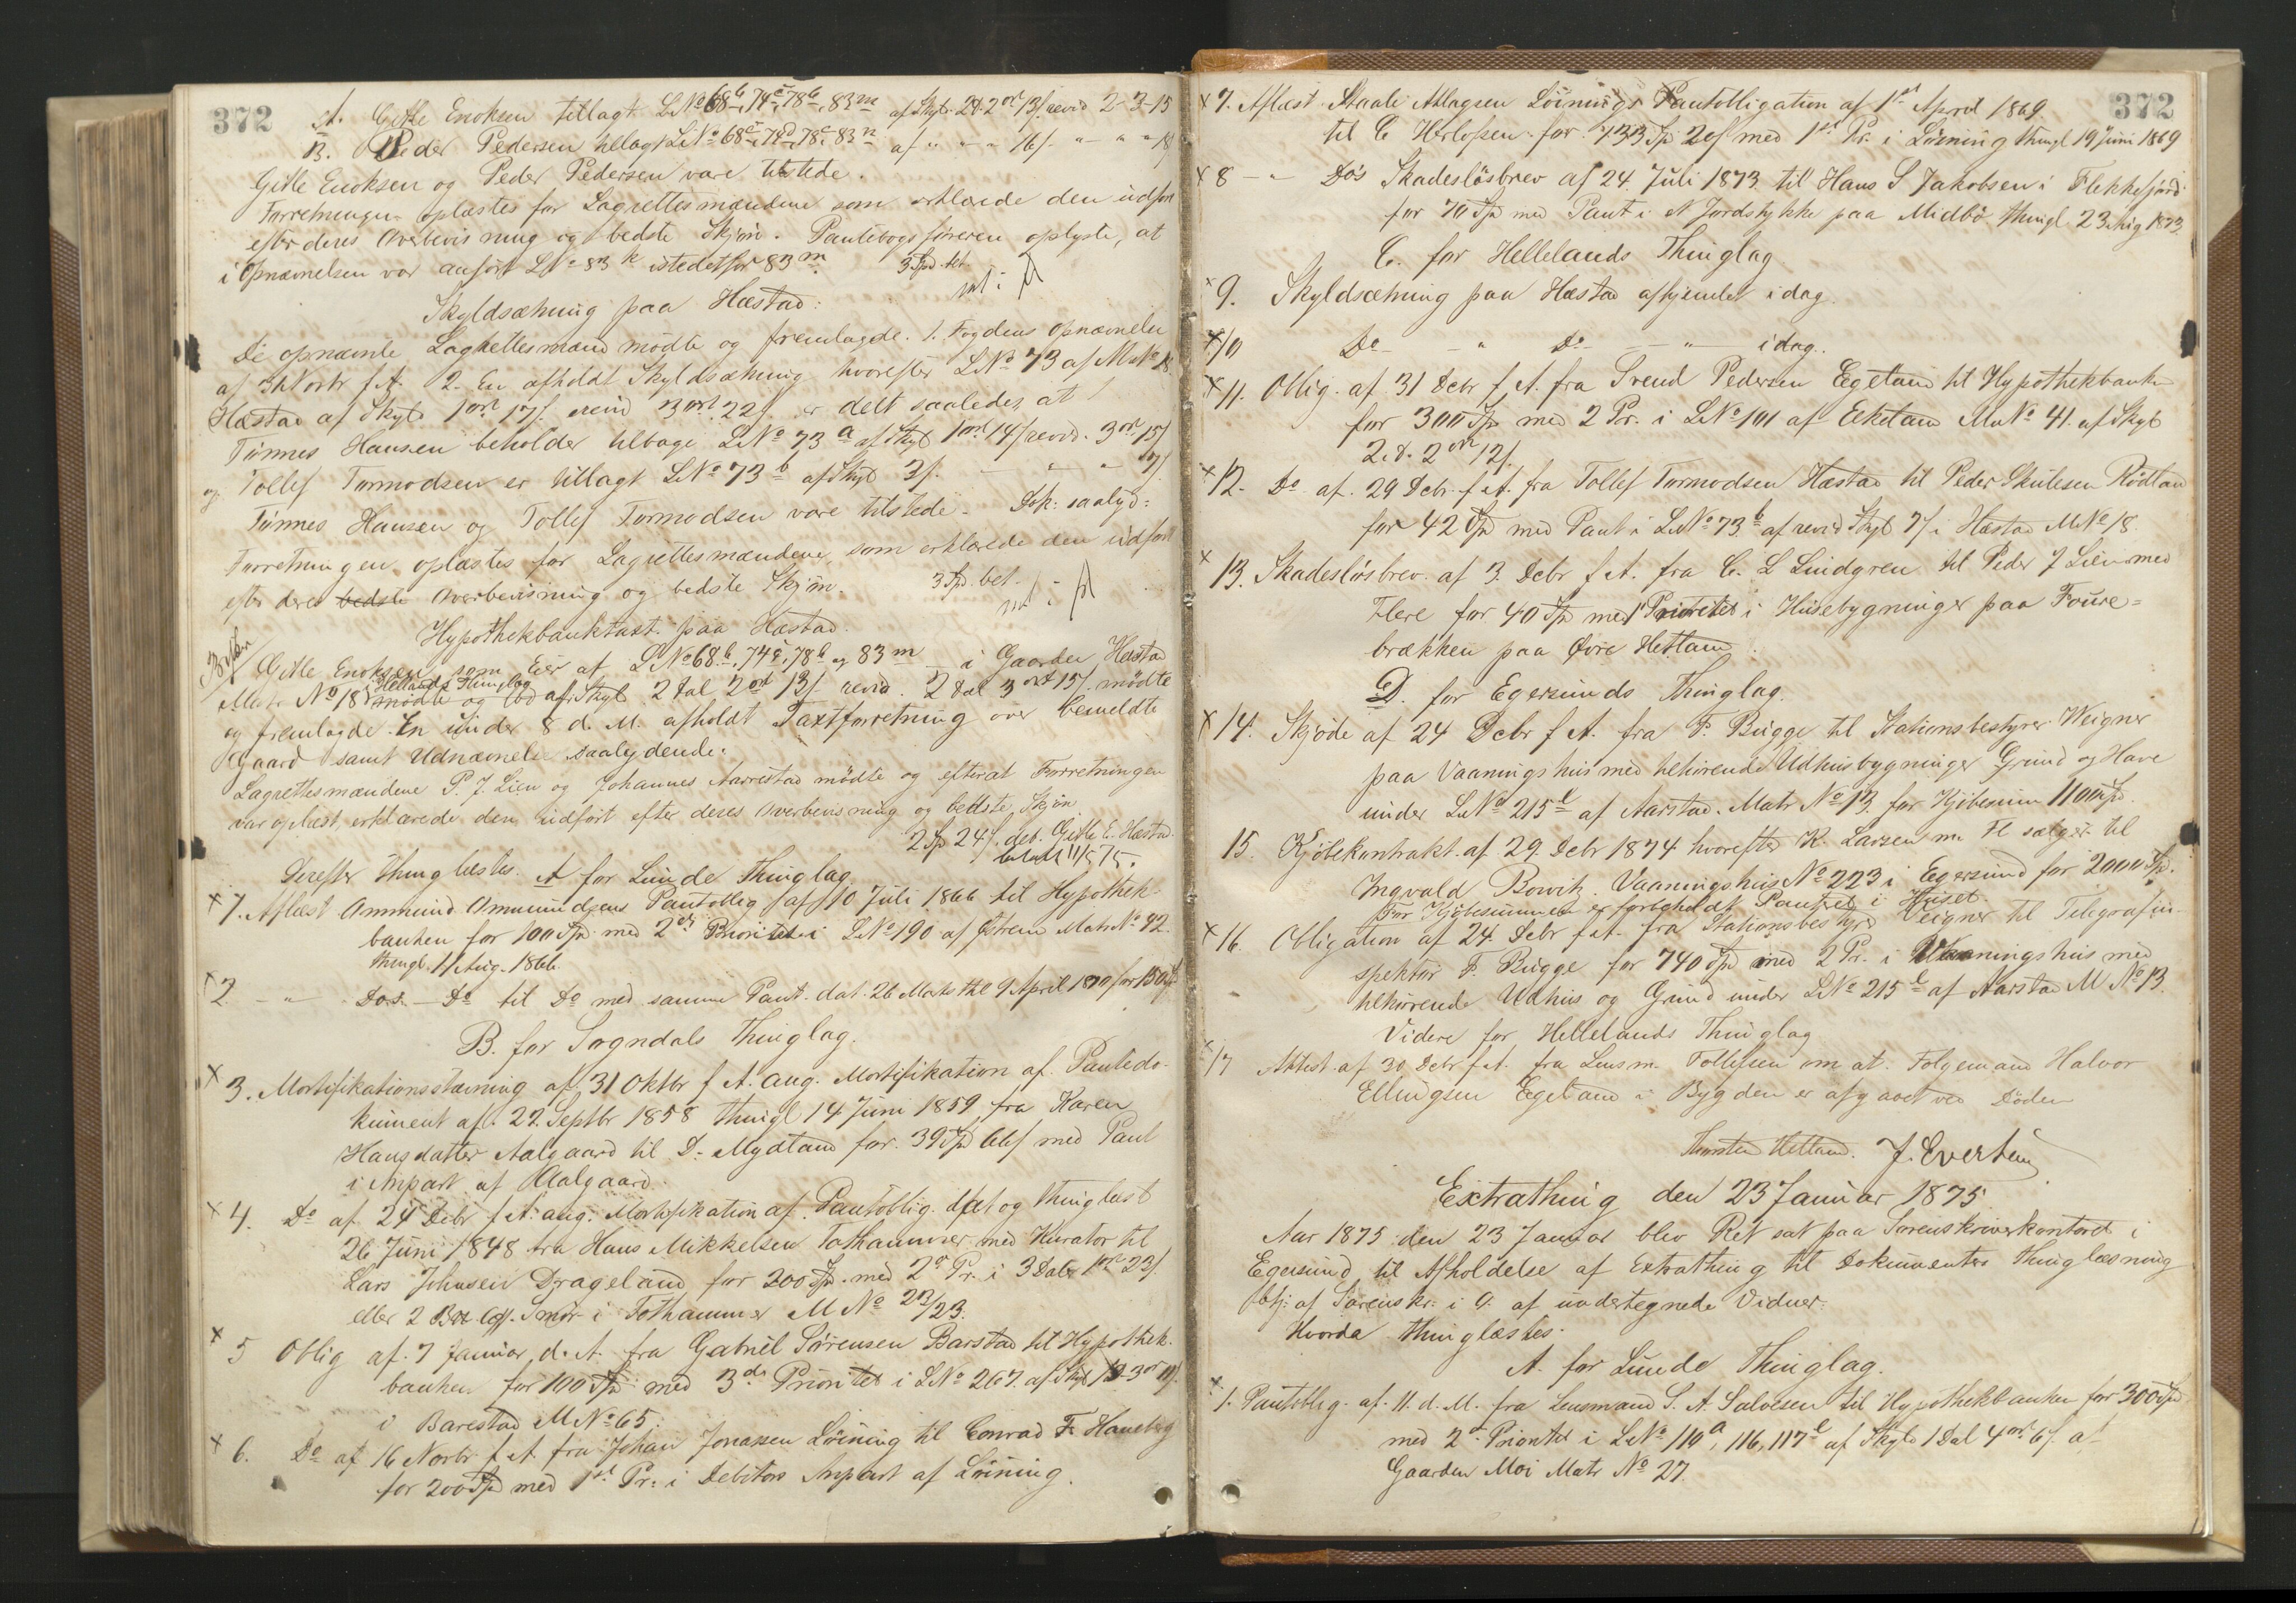 372
A. Gitle Enoksen tillagt LNo 68b, 74c, 78b, 83m af Skyld 2d 2ort 13s revid 2-3-15
B. Peder Pedersen tillagt LNo 68c, 74d, 78c, 83n af " - " 16s " - " 18
Gitle Enoksen og Peder Pedersen vare tilstede.
Forretningen oplæstes for Lagrettesmændene som erklærede den udført
efter deres Overbevisning og bedste Skjøn. Pantebogsføreren oplyste, at
i Opnævnelsen var anført LNo 83k istedetfor 83m. 3 Spd. bet.
Skyldsætning paa Hæstad:
De opnævnte Lagrettesmænd mødte og fremlagde. 1. Fogdens Opnævnelse
af 3 Novbr f A. 2. En afholdt Skyldsætning hvorefter LNo 73 af MNo 18
Hæstad af Skyld 1ort 17s. revid 3ort 22s. er delt saaledes at
Tønnes Hansen beholder tilbage LNo 73a af Skyld 1ort 14s revid. 3ort 15s
og Tollef Tormodsen er tillagt LNo 73b af Skyld 3s. - " - " 7s
Tønnes Hansen og Tollef Tormodsen vare tilstede. Dok: saalyd:
Forretningen oplæstes for Lagrettesmændene, som erklærede den udført
efter deres bedste Overbevisning og bedste Skjøn. 3 Spd. bet.
Hypothekbanktaxt paa Hæstad.
Gitle Enoksen som Eier af LNo 68b, 74c, 78b og 83m i Gaarden Hæstad
Hellands Thinglag
Matr No 18 i mødte og lod af Skyld 2 Dal 2ort 13s revid. 2 Dal 3ort 15s. mødte
og fremlagde. En under 8 d. M. afholdt Taxtforretning over bemeldte
Gaard samt Udnævnelse saalydende.
Lagrettesmændene P. J. Lien og Johannes Aarrestad mødte og efterat Forretningen
var oplæst, erklærede den udført efter deres Overbevisning og bedste Skjøn
2 Spd 24s. deb. Gitle E. Hæstad.
betalt 11/5 75.
Derefter thinglæstes. A for Lunde Thinglag.
x 1. Aflæst Ommund Ommundsens Pantoblig af 10 Juli 1866 til Hypothek-
banken for 100 Spd med 2den Prioritet i LNo 190 af Østrem Matr No 42
thingl. 11 Aug. 1866.
x 2 - " Dos. - Do til Do med samme Pant. dat. 26 Marts thl 9 April 1870 for 150 Spd
B. for Sogndals Thinglag.
x 3. Mortifikationsstævning af 31 Oktbr f A. ang. Mortifikation af Pantedo-
kument af 27. Septbr 1858 thingl 14 Juni 1859 fra Karen
Hansdatter Aalgaard til D. Mydland for 39 Spd 66s med Pant
i Anpart af Aalgaard.
x 4. Do af 24 Debr f A. ang. Mortifikation af Pantoblig. dat og thinglæst
26 Juni 1848 fra Hans Mikkelsen Tothammer med Kurator til
Lars Johnsen Drageland for 200 Spd. med 2d Pr. i 3 Daler 1ort 23s.
eller 2 Smør i Tothammer M No 22/23.
x 5 Oblig af. 7 Januar d. A. fra Gabriel Sørensen Barstad til Hypothek-
banken for 100 Spd med 3de Prioritet i LNo 267. af Skyld
i Barestad MNo 65.
x 6. Do af 16 Novbr f A fra Johan Jonassen Løining til Conrad Fr Haneberg
for 200 Spd med 1st Pr. i Debitors Anpart af Løining.
372
x 7. Aflæst. Staale Atlagsen Løinings Pantobligation af 1st April 1869
til C Herlofsen for 733 Spd 20s med 1st Pr. i Løining thingl 19 Juni 1869
x 8 - " Dos Skadesløsbrev af 24. Juli 1873 til Hans S Jakobsen i Flekkefjord
for 70 Spd med Pant i et Jordstykke paa Midbø thingl 23 Aug 1873.
C. for Hellelands Thinglag
x 9. Skyldsætning paa Hæstad afhjemlet idag.
x 10 Do - " Do - " - idag.
x 11. Oblig. af 31 Debr f A. fra Svend Pedersen Egeland til Hypothekbanken
for 300 Spd med 2 Pr. i LNo 101 af Eikeland MNo 41. af Skyld
2 d. 2ort 12s.
x 12. Do af. 29 Debr. f A. fra Tollef Tormodsen Hæstad til Peder Skulesen Rødland
for 42 Spd med Pant i LNo 73b af revid Skyld 7s i Hæstad MNo 18.
x 13. Skadesløsbrev af 3. Debr f A. fra C. L Lindgren til Peder J Lien med
Flere for 40 Spd med 1 Prioritet i Husebygninger paa Foure-
brækken paa Øvre Hetland.
D. for Egersunds Thinglag.
x 14. Skjøde af 24 Debr f A. fra F. Bugge til Stationsbestyrer Weigner
paa Vaaningshus med tilhørende Udhusbygninger Grund og Have
under LNo 215l af Aarstad. Matr No 13 for Kjøbesum 1100 Spd.
15. Kjøbekontrakt af 29. Debr 1874 hvorefter K. Larsen m Fl sælger til
Ingvald Bowitz. Vaaningshus No 223 i Egersund for 2000 Spd.
For Kjøbesummen er forbeholdt Panteret i Huset
x 16. Obligation af 24. Debr f A. fra Stationsbestyrer Veigner til Telegrafin-
spektør F. Bugge for 740 Spd med 2 Pr. i Vaaningshus med
tilhørende Udhus og Grund under LNo 215l af Aarstad M No 13.
Videre for Hellelands Thinglag
x 17 Attest af 30 Debr f A. fra Lensm. Tollefsen om at Følgemand Halvor
Ellingsen Egeland i Bygden er afgaaet ved Døden
Thorsten Hetland. J. Evertsen
Extrathing den 23 Januar 1875
Aar 1875 den 23 Januar blev Ret sat paa Sorenskriverkontoret i
Egersund til Afholdelse af Extrathing til Dokumenters Thinglæsning
btj: af Sorenskr: i O. af undertegnede Vidner.
Hvorda thinglæstes.
A. for Lunde Thinglag.
x 1. Pantoblig. af. 11. d. M. fra Lensmand S. A. Salvesen til Hypothekbanken for 300 Spd
med 2d Prioritet i LNo 110a, 116, 117l af Skyld 1 Dal 4ort 6s. af
Gaarden Moi Matr No 27.